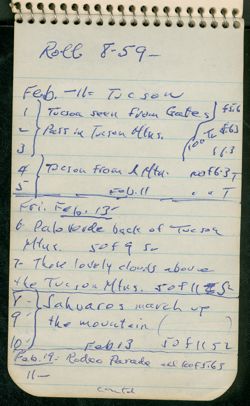 Roll 8-59-
Feb. -11- Tucson
1 Tucson seen from Gates f5.6
2 Pass in Tucson Mtns. f 6.3
3 100 f 6.3
4 Tucson from Mtn. f 6.3 T
5 Feb. 11 " " T
Fri. Feb. 13
6 Palo Verde back of Tucson
Mtns. 50 f 9
7- Those lovely clouds above
the Tucson Mtns. 50 f 11
8- Sahuaros march up
9 the mountain
10 Feb 13 50 f 11 52
Feb. 19- Rodeo Parade f 5.6
11-
contd